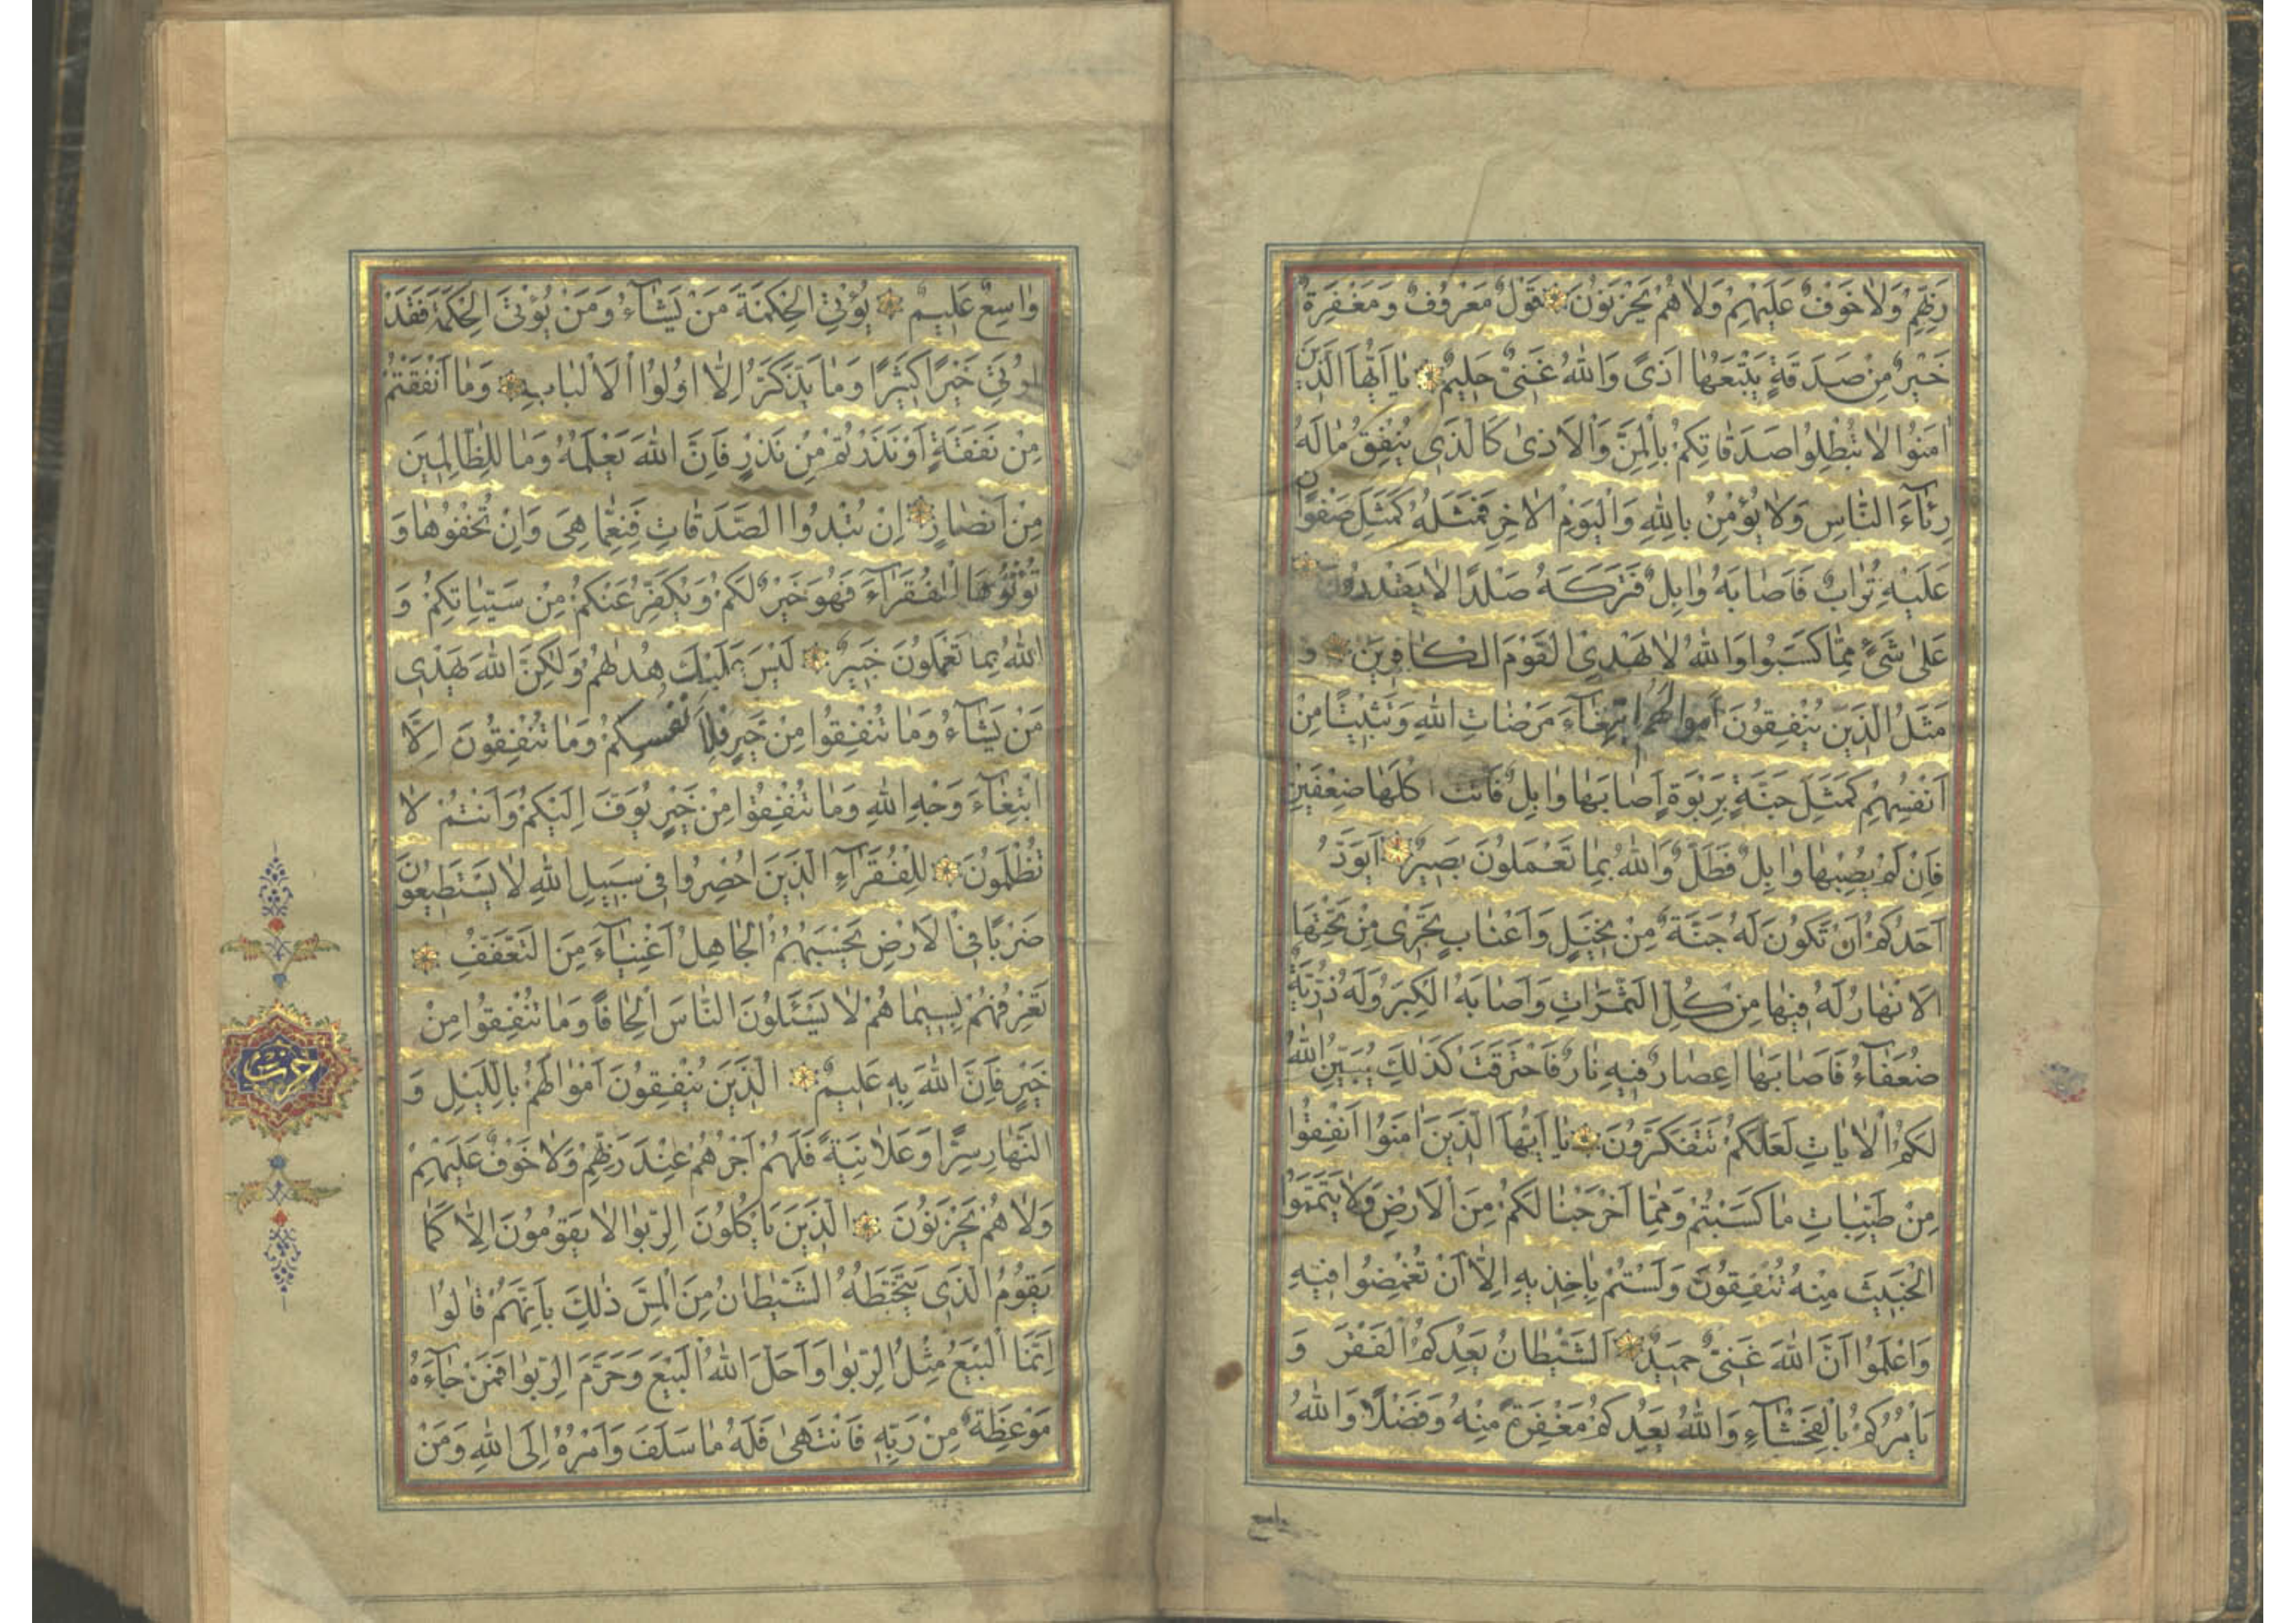 رَبِّهِمْ وَلَا خَوْفٌ عَلَيْهِمْ وَلَا هُمْ يَحْزَنُونَ قَوْلٌ مَعْرُوفٌ وَمَغْفِرَةٌ
خَيْرٌ مِنْ صَدَقَةٍ يَتْبَعُهَا اَذًى وَاللّٰهُ غَنِىٌّ حَلِيمٌ يَا اَيُّهَا الَّذِينَ
اٰمَنُوا لَا تُبْطِلُوا صَدَقَاتِكُمْ بِالْمَنِّ وَالْاَذٰى كَالَّذِى يُنْفِقُ مَالَهُ
رِئَآءَ النَّاسِ وَلَا يُؤْمِنُ بِاللّٰهِ وَالْيَوْمِ الْاٰخِرِ فَمَثَلُهُ كَمَثَلِ صَفْوَانٍ
عَلَيْهِ تُرَابٌ فَاَصَابَهُ وَابِلٌ فَتَرَكَهُ صَلْدًا لَا يَقْدِرُونَ
عَلٰى شَىْءٍ مِمَّا كَسَبُوا وَاللّٰهُ لَا يَهْدِى الْقَوْمَ الْكَافِرِينَ وَ
مَثَلُ الَّذِينَ يُنْفِقُونَ اَمْوَالَهُمُ ابْتِغَآءَ مَرْضَاتِ اللّٰهِ وَتَثْبِيتًا مِنْ
اَنْفُسِهِمْ كَمَثَلِ جَنَّةٍ بِرَبْوَةٍ اَصَابَهَا وَابِلٌ فَاٰتَتْ اُكُلَهَا ضِعْفَيْنِ
فَاِنْ لَمْ يُصِبْهَا وَابِلٌ فَطَلٌّ وَاللّٰهُ بِمَا تَعْمَلُونَ بَصِيرٌ اَيَوَدُّ
اَحَدُكُمْ اَنْ تَكُونَ لَهُ جَنَّةٌ مِنْ نَخِيلٍ وَاَعْنَابٍ تَجْرِى مِنْ تَحْتِهَا
الْاَنْهَارُ لَهُ فِيهَا مِنْ كُلِّ الثَّمَرَاتِ وَاَصَابَهُ الْكِبَرُ وَلَهُ ذُرِّيَّةٌ
ضُعَفَآءُ فَاَصَابَهَا اِعْصَارٌ فِيهِ نَارٌ فَاحْتَرَقَتْ كَذٰلِكَ يُبَيِّنُ اللّٰهُ
لَكُمُ الْاٰيَاتِ لَعَلَّكُمْ تَتَفَكَّرُونَ يَا اَيُّهَا الَّذِينَ اٰمَنُوا اَنْفِقُوا
مِنْ طَيِّبَاتِ مَا كَسَبْتُمْ وَمِمَّا اَخْرَجْنَا لَكُمْ مِنَ الْاَرْضِ وَلَا تَيَمَّمُوا
الْخَبِيثَ مِنْهُ تُنْفِقُونَ وَلَسْتُمْ بِاٰخِذِيهِ اِلَّا اَنْ تُغْمِضُوا فِيهِ
وَاعْلَمُوا اَنَّ اللّٰهَ غَنِىٌّ حَمِيدٌ اَلشَّيْطَانُ يَعِدُكُمُ الْفَقْرَ وَ
يَاْمُرُكُمْ بِالْفَحْشَآءِ وَاللّٰهُ يَعِدُكُمْ مَغْفِرَةً مِنْهُ وَفَضْلًا وَاللّٰهُ
واسع
وَاسِعٌ عَلِيمٌ يُؤْتِى الْحِكْمَةَ مَنْ يَشَآءُ وَمَنْ يُؤْتَ الْحِكْمَةَ فَقَدْ
اُوتِىَ خَيْرًا كَثِيرًا وَمَا يَذَّكَّرُ اِلَّا اُولُوا الْاَلْبَابِ وَمَا اَنْفَقْتُمْ
مِنْ نَفَقَةٍ اَوْ نَذَرْتُمْ مِنْ نَذْرٍ فَاِنَّ اللّٰهَ يَعْلَمُهُ وَمَا لِلظَّالِمِينَ
مِنْ اَنْصَارٍ اِنْ تُبْدُوا الصَّدَقَاتِ فَنِعِمَّا هِىَ وَاِنْ تُخْفُوهَا وَ
تُؤْتُوهَا الْفُقَرَآءَ فَهُوَ خَيْرٌ لَكُمْ وَيُكَفِّرُ عَنْكُمْ مِنْ سَيِّئَاتِكُمْ وَ
اللّٰهُ بِمَا تَعْمَلُونَ خَبِيرٌ لَيْسَ عَلَيْكَ هُدٰيهُمْ وَلٰكِنَّ اللّٰهَ يَهْدِى
مَنْ يَشَآءُ وَمَا تُنْفِقُوا مِنْ خَيْرٍ فَلِاَنْفُسِكُمْ وَمَا تُنْفِقُونَ اِلَّا
ابْتِغَآءَ وَجْهِ اللّٰهِ وَمَا تُنْفِقُوا مِنْ خَيْرٍ يُوَفَّ اِلَيْكُمْ وَاَنْتُمْ لَا
تُظْلَمُونَ لِلْفُقَرَآءِ الَّذِينَ اُحْصِرُوا فِى سَبِيلِ اللّٰهِ لَا يَسْتَطِيعُونَ
ضَرْبًا فِى الْاَرْضِ يَحْسَبُهُمُ الْجَاهِلُ اَغْنِيَآءَ مِنَ التَّعَفُّفِ
تَعْرِفُهُمْ بِسِيمَاهُمْ لَا يَسْئَلُونَ النَّاسَ اِلْحَافًا وَمَا تُنْفِقُوا مِنْ
خَيْرٍ فَاِنَّ اللّٰهَ بِهِ عَلِيمٌ الَّذِينَ يُنْفِقُونَ اَمْوَالَهُمْ بِالَّيْلِ وَ
النَّهَارِ سِرًّا وَعَلَانِيَةً فَلَهُمْ اَجْرُهُمْ عِنْدَ رَبِّهِمْ وَلَا خَوْفٌ عَلَيْهِمْ
وَلَا هُمْ يَحْزَنُونَ الَّذِينَ يَاْكُلُونَ الرِّبٰوا لَا يَقُومُونَ اِلَّا كَمَا
يَقُومُ الَّذِى يَتَخَبَّطُهُ الشَّيْطَانُ مِنَ الْمَسِّ ذٰلِكَ بِاَنَّهُمْ قَالُوا
اِنَّمَا الْبَيْعُ مِثْلُ الرِّبٰوا وَاَحَلَّ اللّٰهُ الْبَيْعَ وَحَرَّمَ الرِّبٰوا فَمَنْ جَآءَهُ
مَوْعِظَةٌ مِنْ رَبِّهِ فَانْتَهٰى فَلَهُ مَا سَلَفَ وَاَمْرُهُ اِلَى اللّٰهِ وَمَنْ
حزب